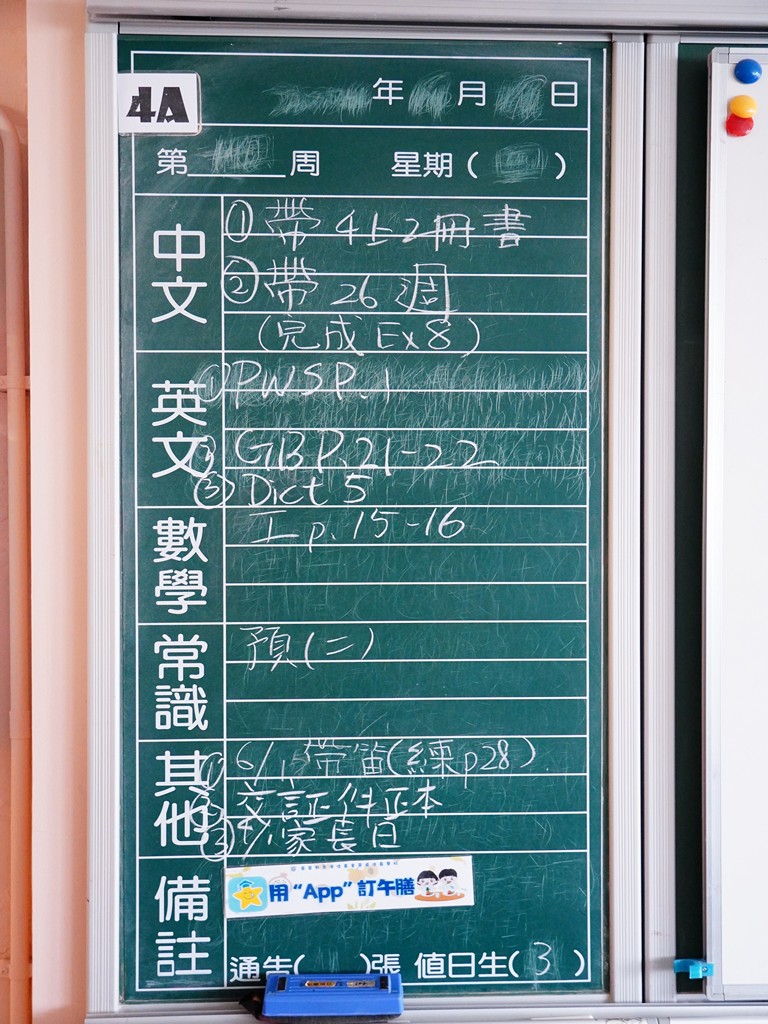 4A
年 月 日
第 周 星期( )
中文
① 帶 4上2冊書
② 帶 26 週
(完成 Ex 8)
英文
① PWS P.1
② GB P.21-22
③ Dict 5
數學
工 p.15-16
常識
預(二)
其他
① 6/1 帶笛(練p28)
② 交証件正本
③ 家長日
備註
用“App”訂午膳
通告( )張 值日生(3)